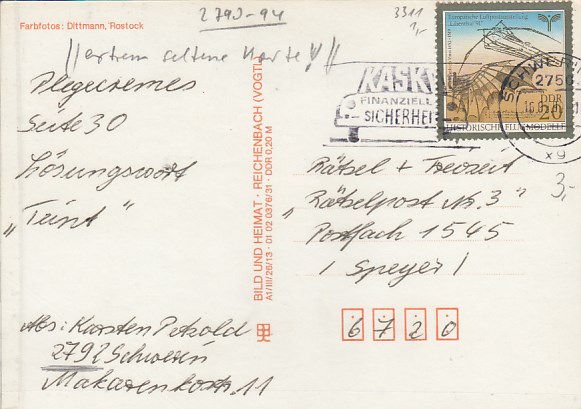 2790-94
3311
1,-
Farbfotos: Dittmann, Rostock
//extrem seltene Karte!//
Plegecremes
Seite 30
Lösungswort
„Teint“
Abs: Karsten Petzold
2792 Schwerin
Makarenkostr. 11
BILD UND HEIMAT · REICHENBACH (VOGTL)
A1/III/26/13 · 01 02 0376/31 · DDR 0,20 M
Europäische Luftpostausstellung
„Lilienthal '91“
DDR
20
HISTORISCHE FLUGMODELLE
FINANZIELLE
SICHERHEIT
SCHWERIN
2756
xg
3,-
Rätsel + Freizeit
„Rätselpost Nr. 3“
Postfach 1545
/ Speyer /
6720